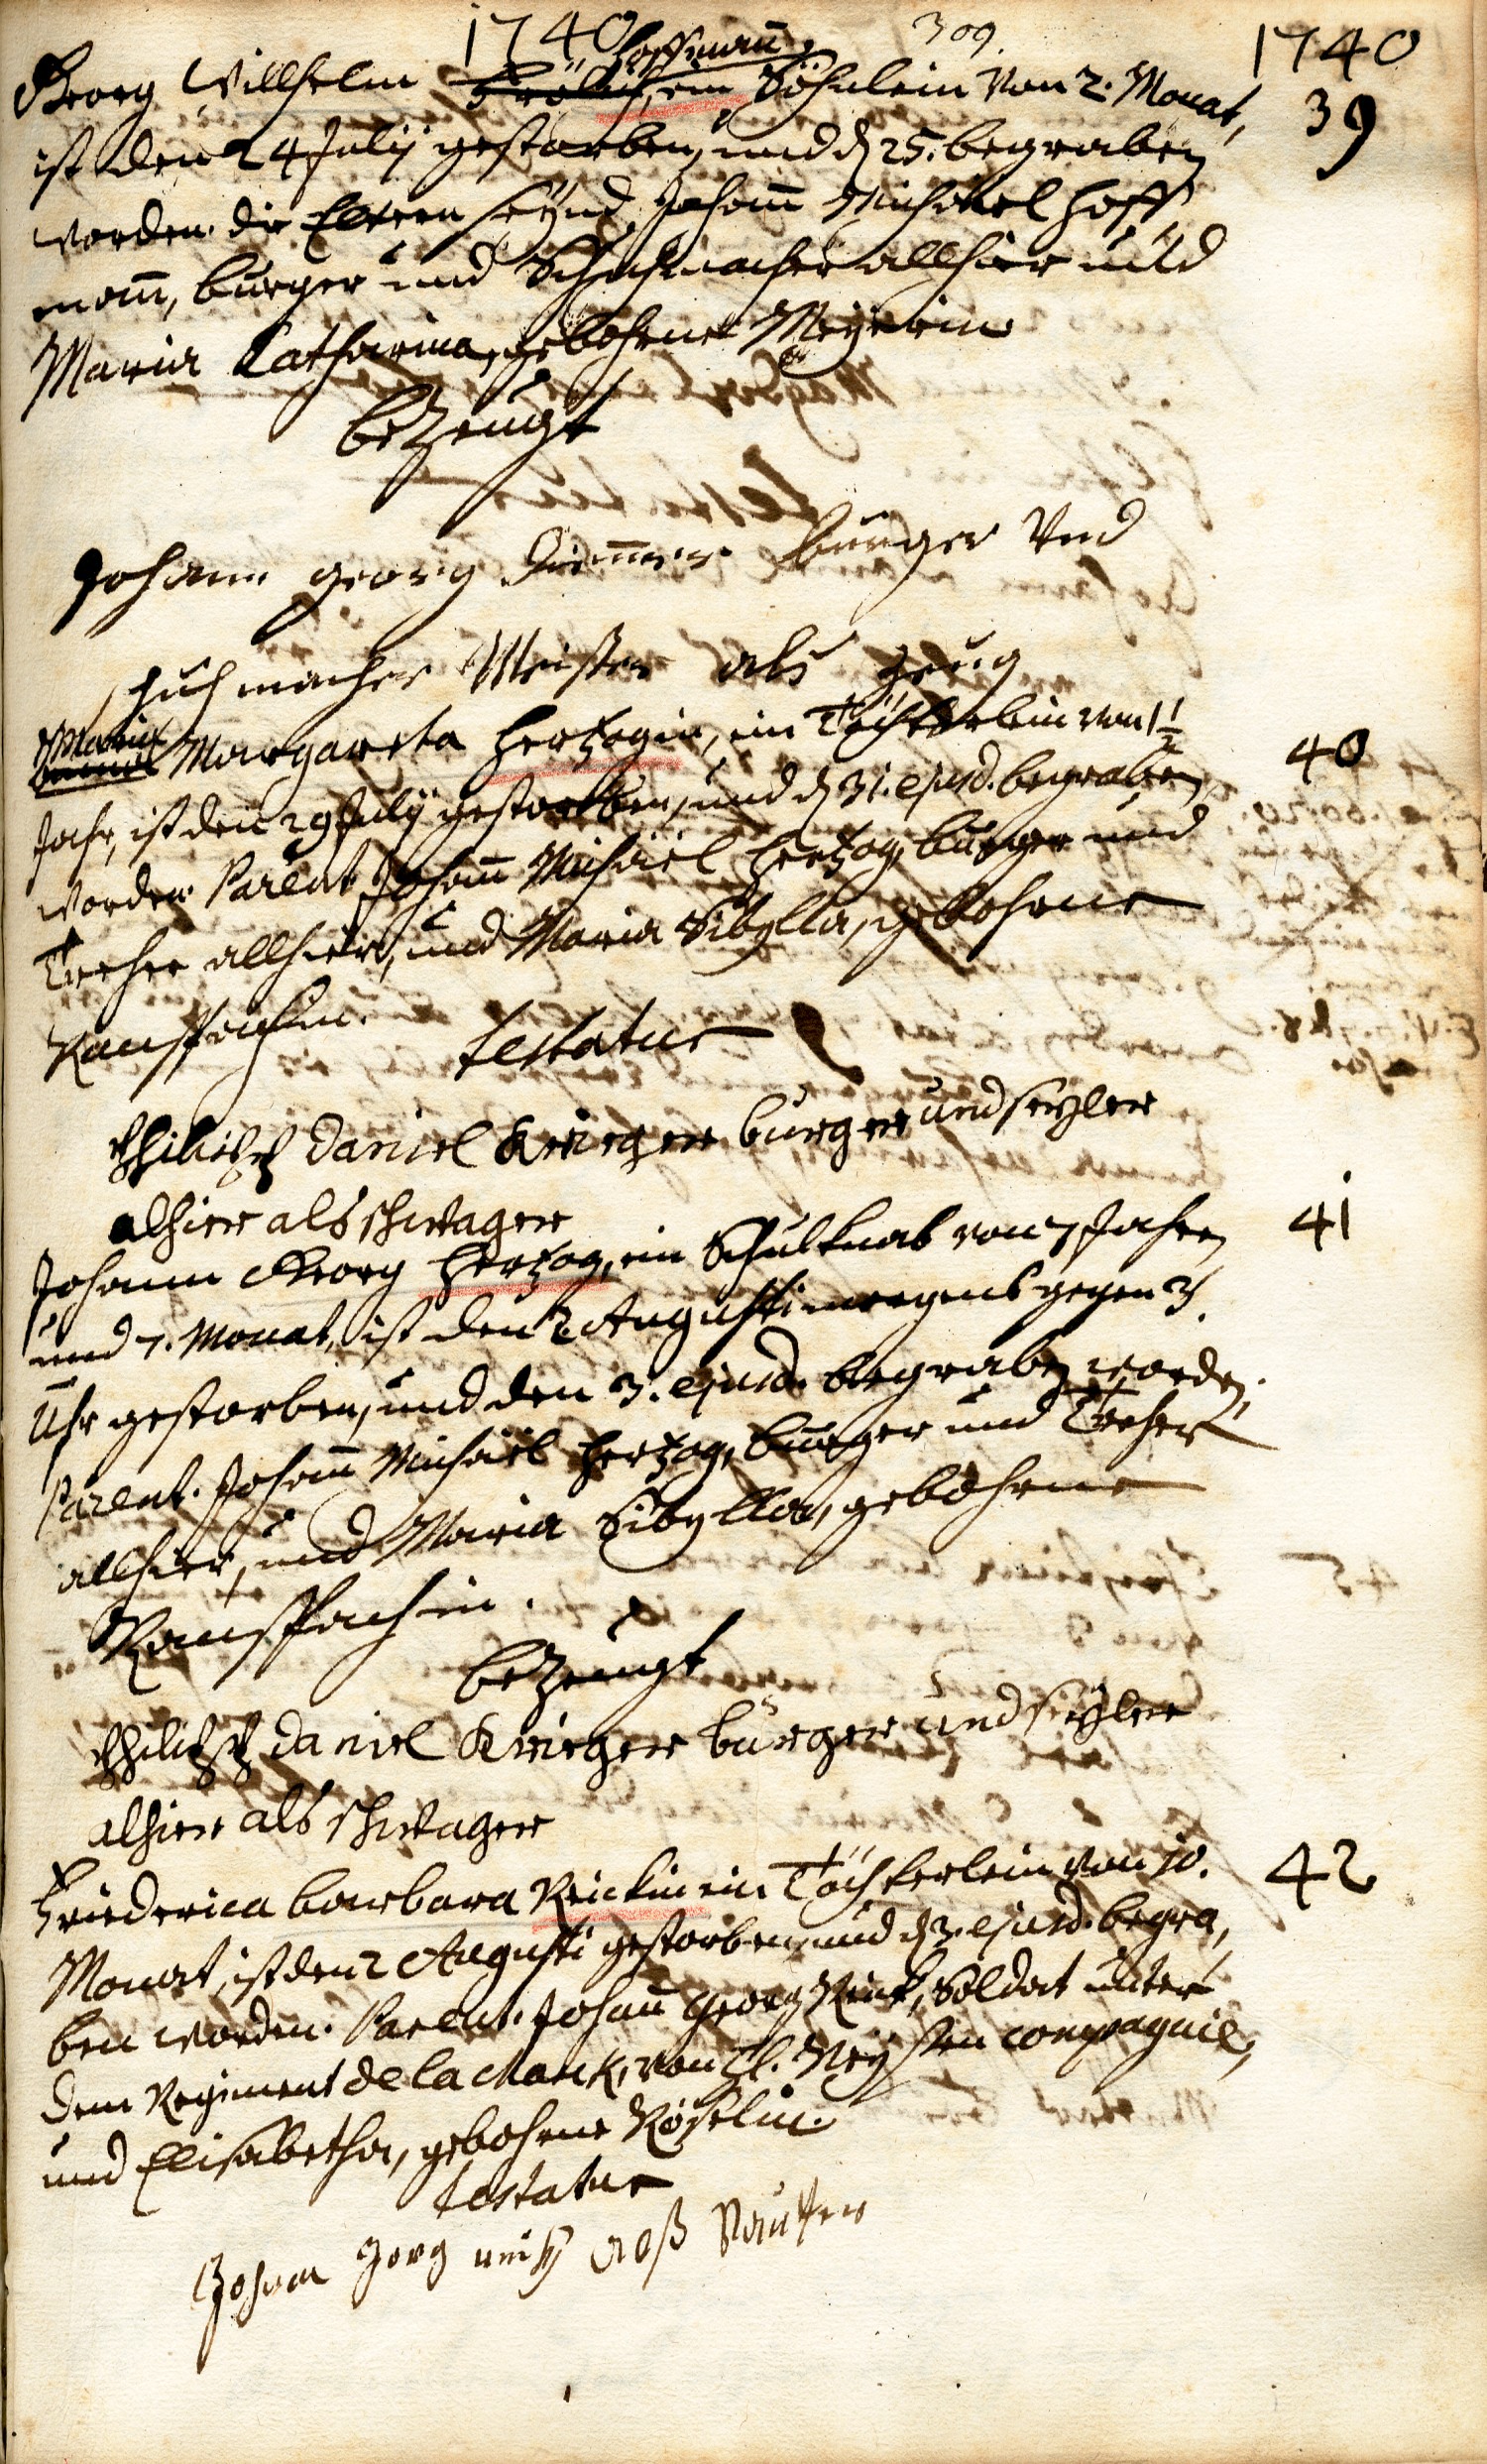 1740 309. 1740
Hoffmann
Georg Willhelm Frölich, ein Söhnlein von 2. Monat, 39
ist den 24 Julÿ gestorben, und d 25. begraben
worden. die Eltern seÿnd Johann Michael Hoff
mann, burger und Schuhmacher allhier und
Maria Catharina, gebohrne Meÿerin
bezeugt
Johann georg burger Vnd
schuch macher Meister als zeug
Maria
Margareta Hertzogin, ein Töchterlein von 1 1/2 40
Jahr, ist den 29 Julÿ gestorben, und d 31. ejusd. begraben
worden. Parent. Johann Michäel Hertzog, burger und
Treher allhier, und Maria Sibylla, gebohrne
Ranspachin.
testatur
Philipp daniel Krieger burger und seyler
alhier als schwager
Johann Georg Hertzog, ein Schulknab von 7 Jahren 41
und 7. Monat, ist den 2 Augusti morgens gegen 3.
Uhr gestorben, und den 3. ejusd. begraben worden,
Parent. Johann Michäel Hertzog, burger und Treher
allhier, und Maria Sibylla, gebohrne
Ranspachin.
bezeugt
Philipp daniel Krieger burger und seyler
alhier als schwager
Friederica barbara Reickin ein Töchterlein von 10. 42
Monat, ist den 2 Augusti gestorben, und d 3. ejusd. begra,
ben worden. Parent. Johann Georg Reick, Soldat unter
dem Regiment de la Marck, von compagnie,
und Elisabetha, gebohrne Röselin.
testatur
Johan Jorg alß Vatter